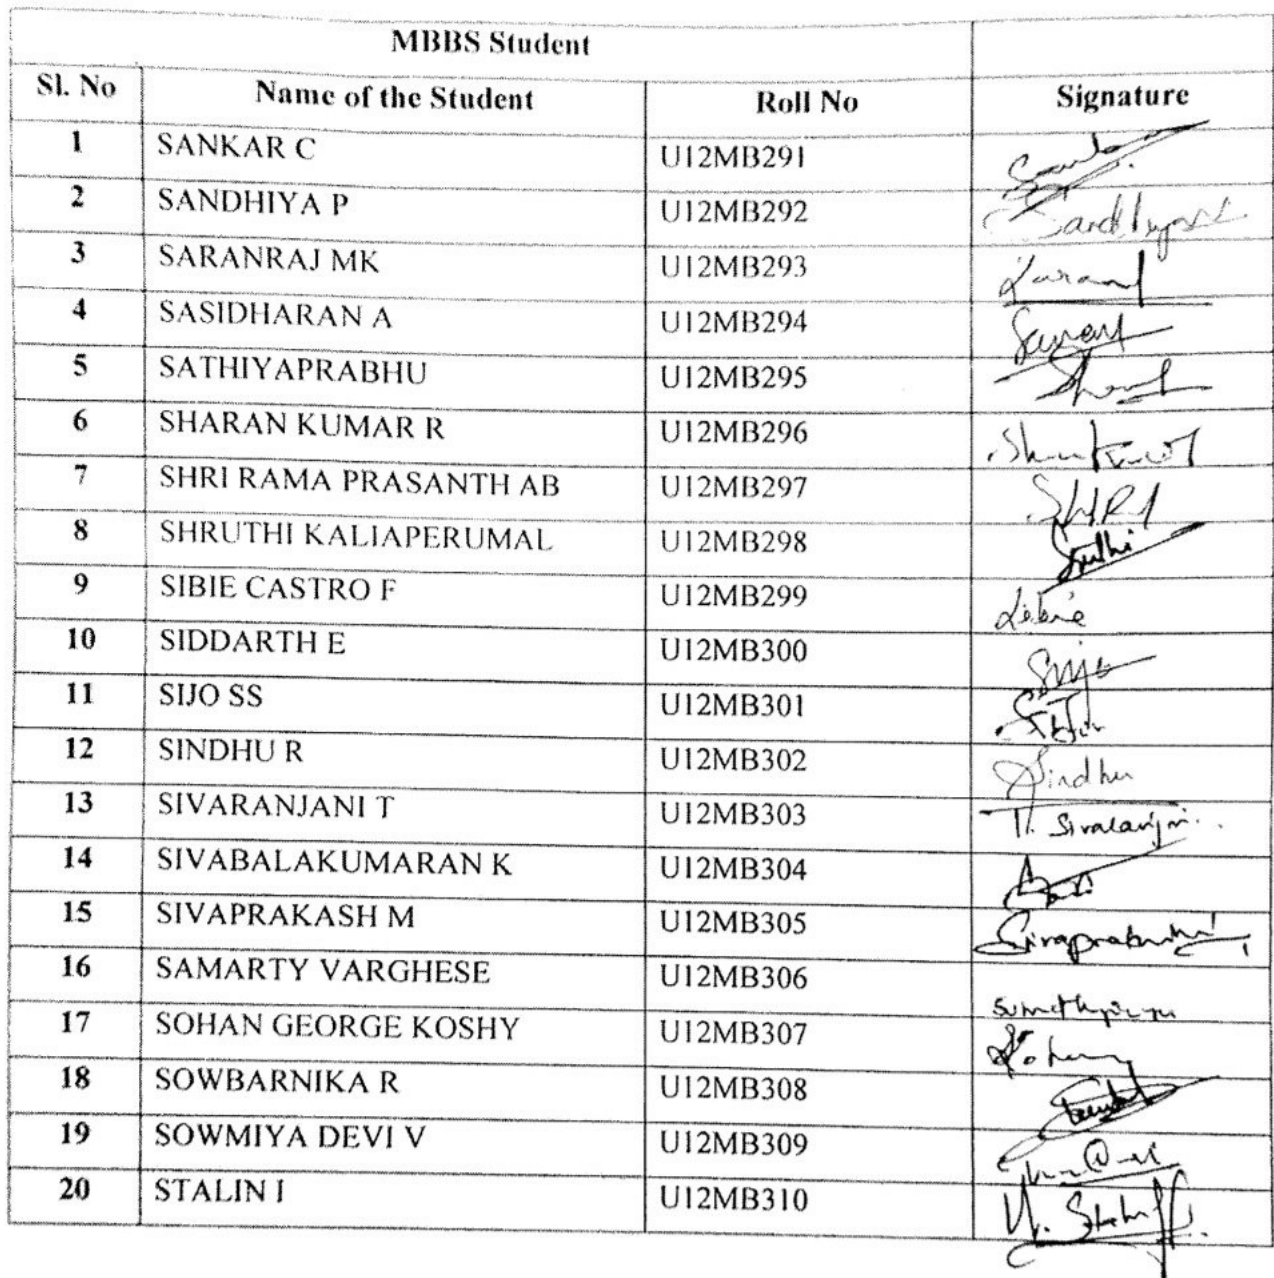 MBBS Student
Sl. No Name of the Student Roll No Signature
1 SANKAR C U12MB291
2 SANDHIYA P U12MB292
3 SARANRAJ MK U12MB293
4 SASIDHARAN A U12MB294
5 SATHIYAPRABHU U12MB295
6 SHARAN KUMAR R U12MB296
7 SHRI RAMA PRASANTH AB U12MB297
8 SHRUTHI KALIAPERUMAL U12MB298
9 SIBIE CASTRO F U12MB299
10 SIDDARTH E U12MB300
11 SIJO SS U12MB301
12 SINDHU R U12MB302 Sindhu
13 SIVARANJANI T U12MB303
14 SIVABALAKUMARAN K U12MB304
15 SIVAPRAKASH M U12MB305
16 SAMARTY VARGHESE U12MB306
17 SOHAN GEORGE KOSHY U12MB307
18 SOWBARNIKA R U12MB308
19 SOWMIYA DEVI V U12MB309
20 STALIN I U12MB310